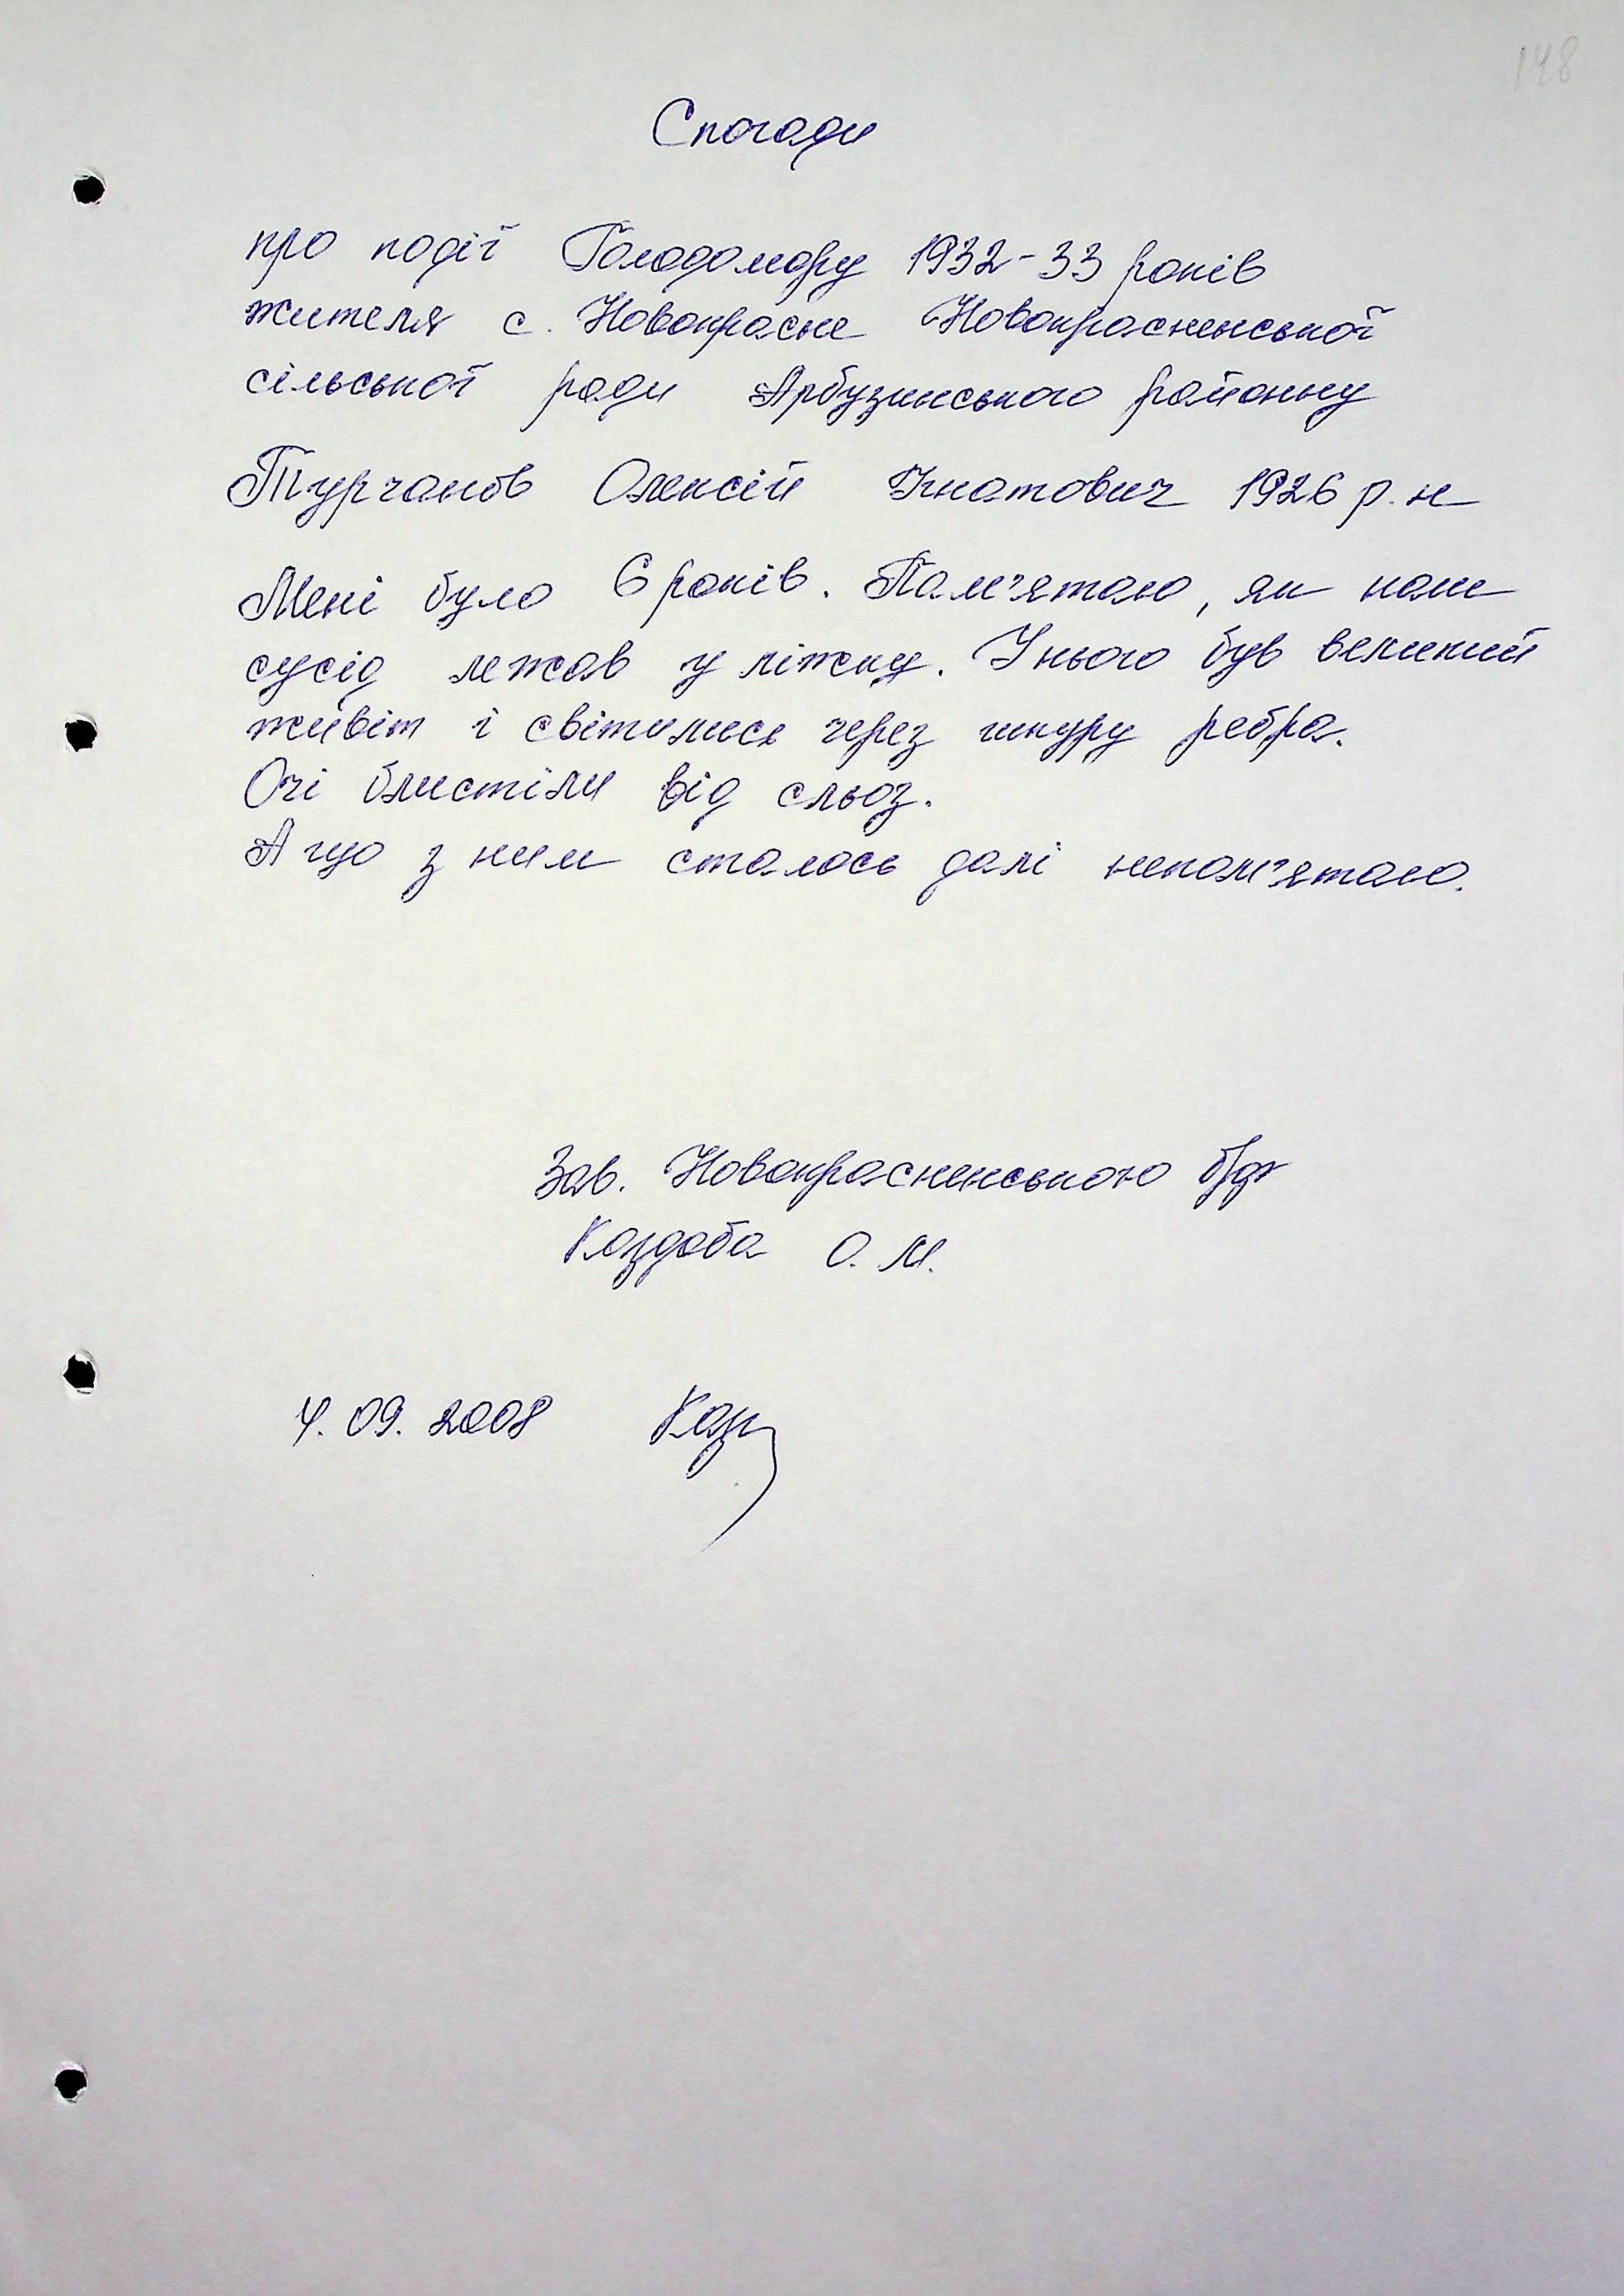 148
Спогади
про події Голодомору 1932-33 років
жителя с. Новокрасне Новокрасненської
сільської ради Арбузинського районну
Турчанов Олексій Ігнатович 1926 р. н
Мені було 6 років. Пам'ятаю, як наш
сусід лежав у ліжку. У нього був великий
живіт і світились через шкуру ребра.
Очі блистіли від сльоз.
А що з ним сталось далі непам'ятаю.
Зав. Новокрасненського
Каздоба О. М.
4. 09. 2008 Каз